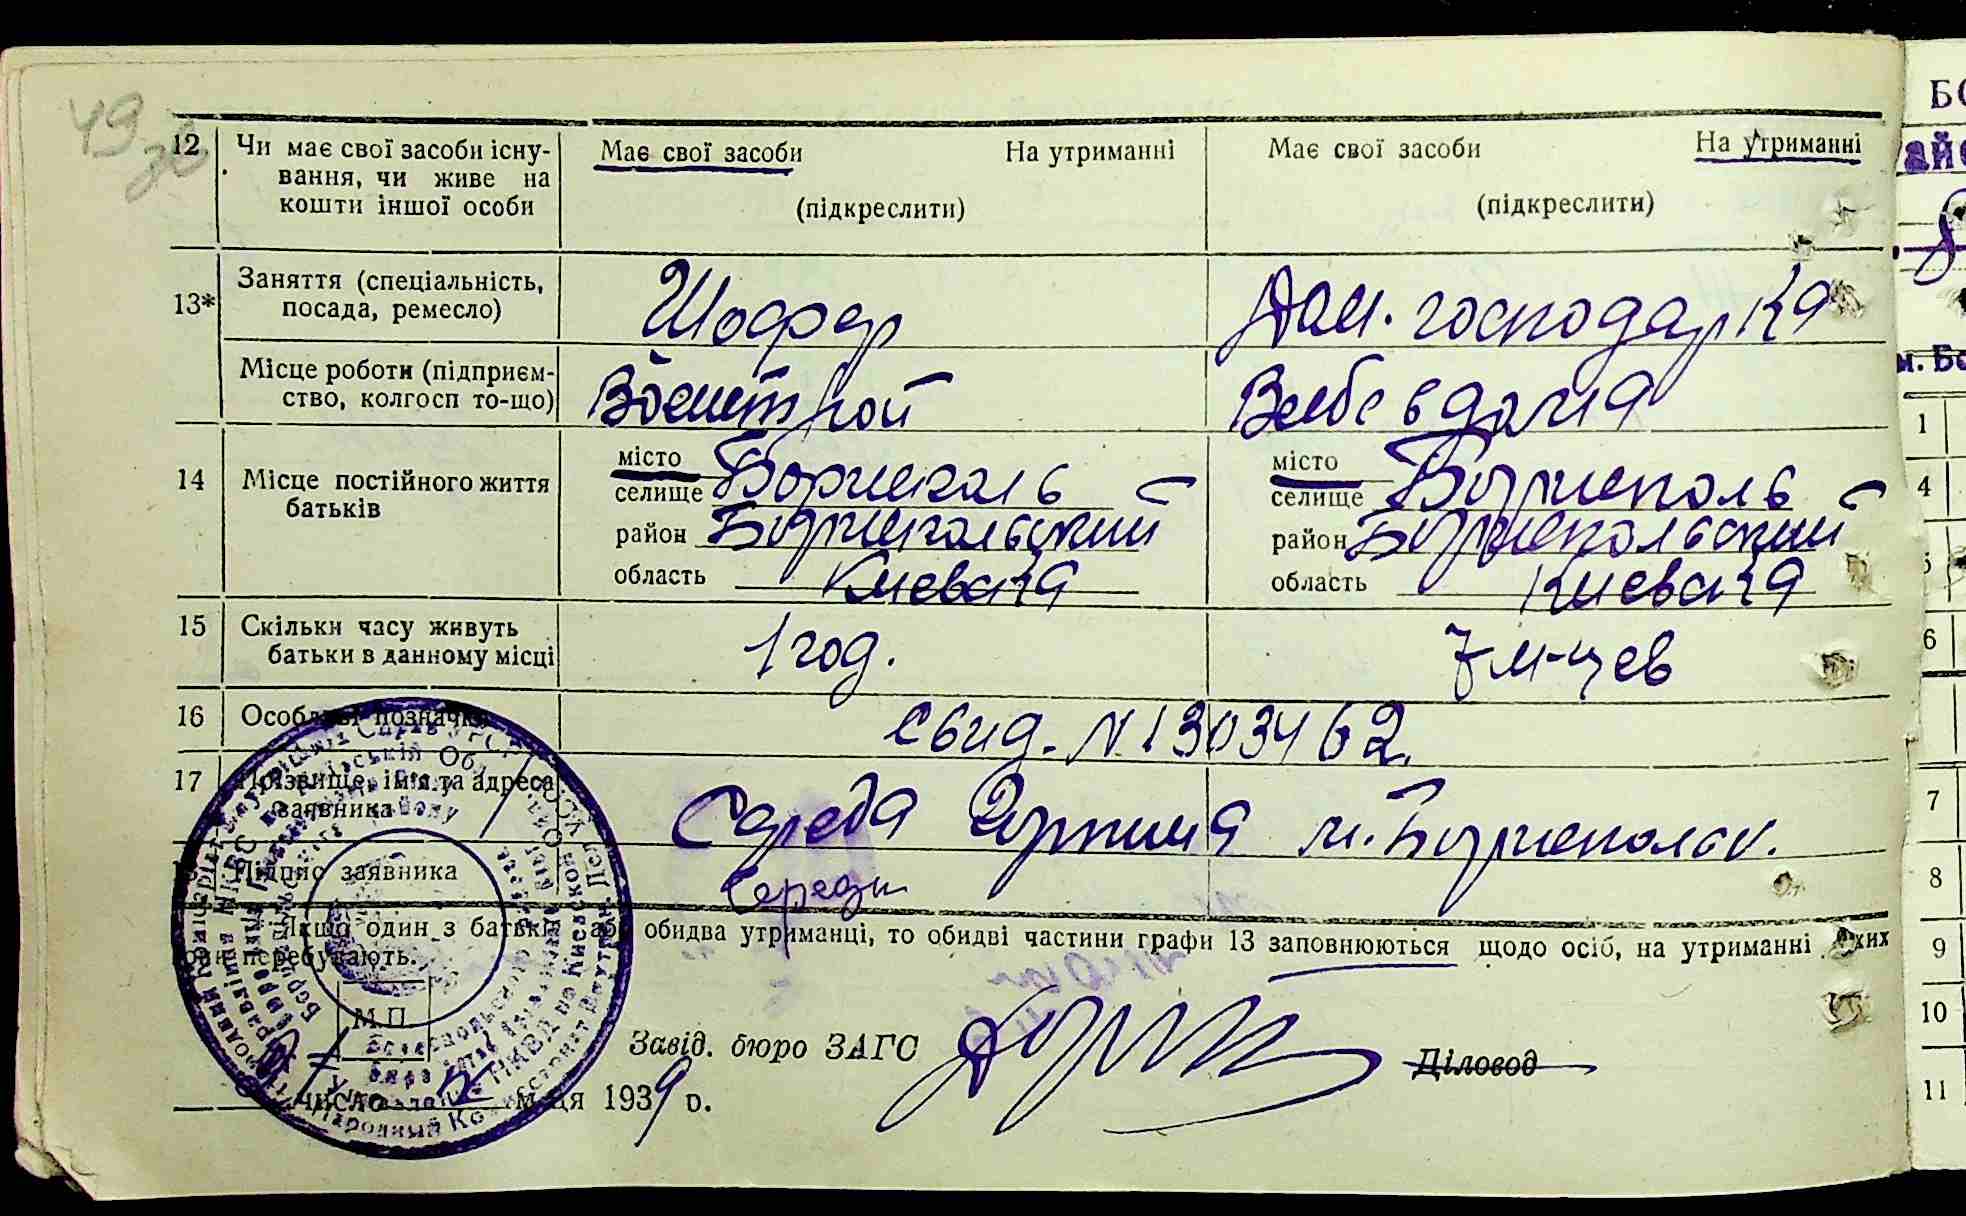 49
зв
12 Чи має свої засоби існу- Має свої засоби На утриманні Має свої засоби На утриманні
вання, чи живе на
кошти іншої особи (підкреслити) (підкреслити)
13* Заняття (спеціальність, Шофер Дом. господарка
посада, ремесло)
Місце роботи (підприєм- Военстрой В себе вдома
ство, колгосп то-що)
14 Місце постійного життя місто Борисполь місто Борисполь
батьків селище селище
район Бориспольский район Бориспольский
область Киевска область Киевска
15 Скільки часу живуть 1 год. 7 м-цев
батьки в данному місці
16 Особливі позначки Свид. №1303462.
17 Прізвище, імя та адреса Середа м. Борисполь
заявника
Підпис заявника Середа
Якщо один з батьків або обидва утриманці, то обидві частини графи 13 заповнюються щодо осіб, на утриманні яких
вони перебувають.
М.П.
Завід. бюро ЗАГС Діловод
число м-ця 1939 р.
БО
м. Бо
1
4
5
6
7
8
9
10
11